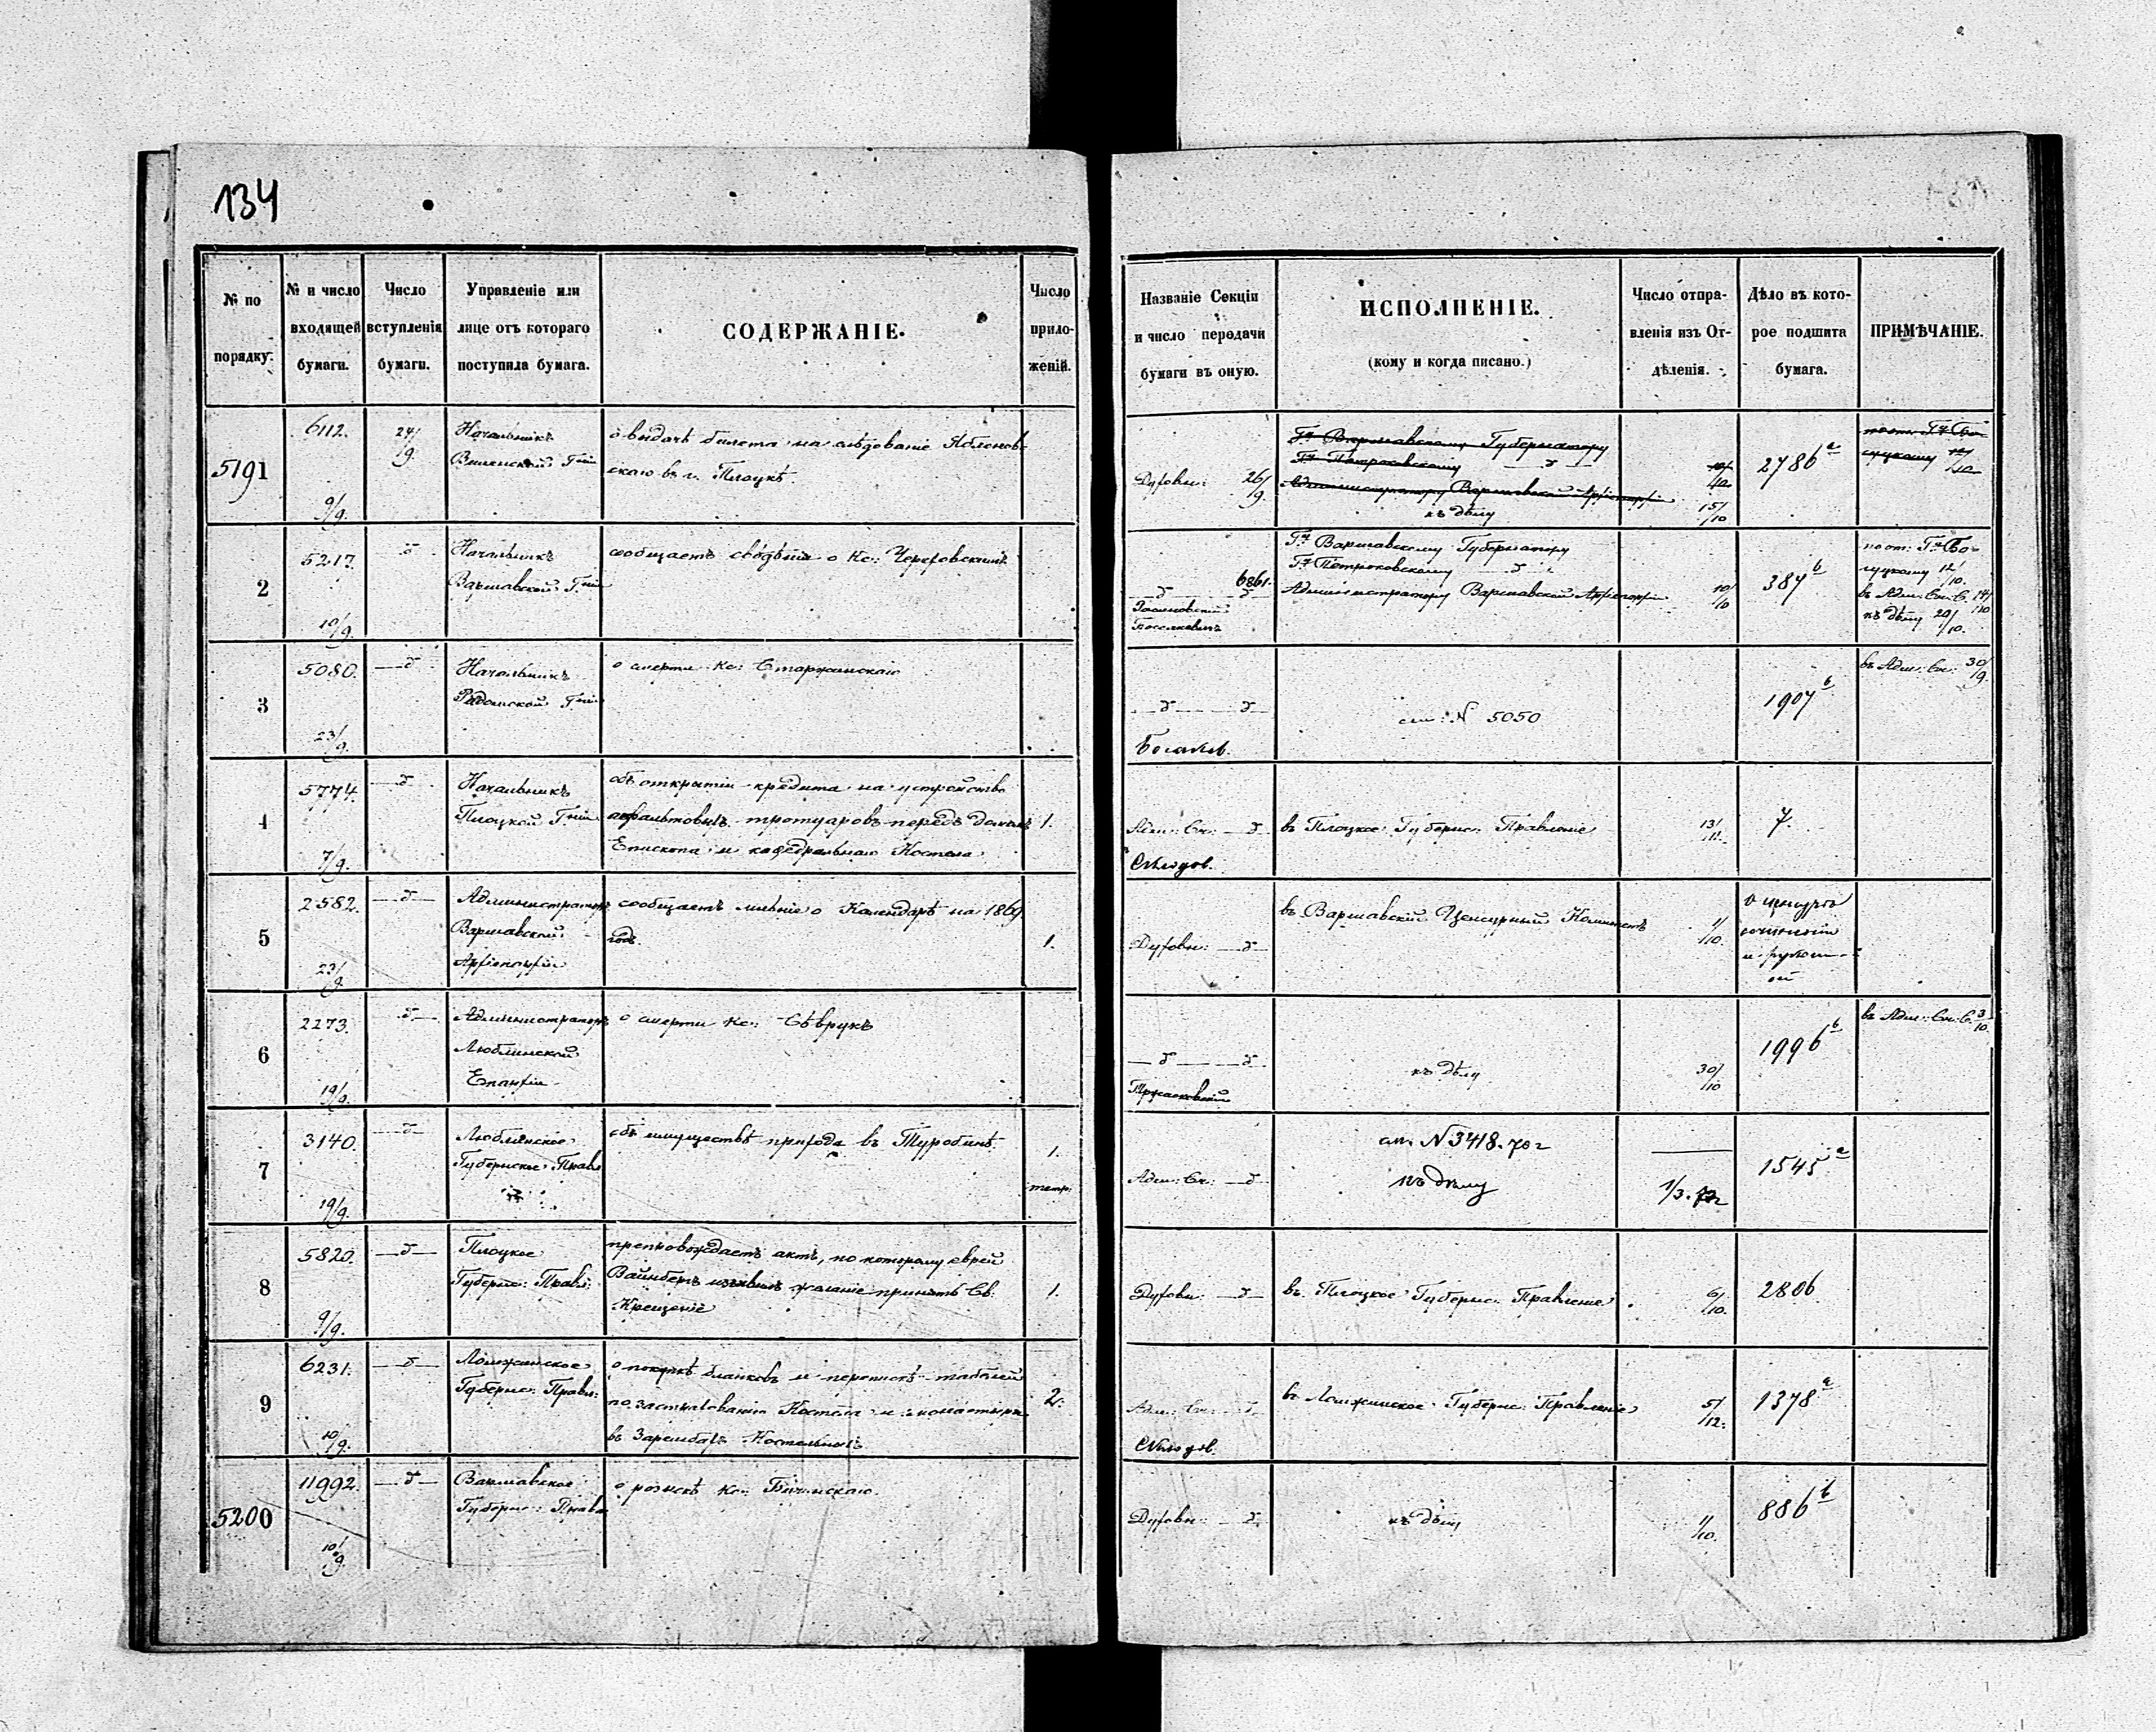 134
№ по порядку.
№ и число входящей бумаги.
Число вступленія бумаги.
Управленіе или лице отъ котораго поступила бумага.
СОДЕРЖАНІЕ.
Число приложеній.
Названіе Секціи и число передачи бумаги въ оную.
ИСПОЛНЕНІЕ.
(кому и когда писано.)
Число отправленія изъ Отдѣленія.
Дѣло въ которое подшита бумага.
ПРИМѢЧАНІЕ.
5191
6112.
9/9.
24/9.
Начальникъ
Губ.
о выдачѣ билета на слѣдованіе Яблонов-
скаго въ г. Плоцкъ.
Духовн: 26/9.
Гну Варшавскому Губернатору
Гну Петроковскому —д—
Администратору Варшавской Архіепархіи
къ дѣлу
15/10
2786 а
2
5217.
10/9.
—д—
Начальникъ
Варшавской Губ.
сообщаетъ свѣдѣнія о Кс:
6861.
—д— —д—
Гну Варшавскому Губернатору
Гну Петроковскому —д—
Администратору Варшавской Архіепархіи
10/10
384 b
12/10.
въ Адм: Ск: 14/10
къ дѣлу 20/10.
3
5080.
23/9.
—д—
Начальникъ
Радомской Губ.
о смерти Кс: Старжинскаго
—д— —д—
см: N 5050
1907 b
въ Адм: Ск: 30/9.
4
5774.
7/9.
—д—
Начальникъ
Плоцкой Губ.
объ открытіи кредита на устройство
асфальтовыхъ тротуаровъ передъ домомъ
Епископа и кафедральнаго Костела
1.
Адм: Ск: —д—
въ Плоцкое Губерн: Правленіе
13/11.
7.
5
2582.
23/9.
—д—
Администраторъ
Варшавской
Архіепархіи
сообщаетъ мнѣніе о Календарѣ на 1869
годъ.
1.
Духовн: —д—
въ Варшавскій Ценсурный Комитетъ
1/10.
о цензурѣ
сочиненій
6
2273.
19/9.
—д—
Администраторъ
Люблинской
Епархіи
о смерти Кс: Сѣврукъ
—д— —д—
къ дѣлу
30/10
1996 b
въ Адм: Ск: 3/10.
7
3140.
19/9.
—д—
Люблинское
Губернское Правл
объ имуществѣ прихода въ Туробинѣ.
1.
тетр.
Адм: Ск: —д—
см. N 3418. 70 г
къ дѣлу
1545 а
8
5820.
9/9.
—д—
Плоцкое
Губерн: Правл:
препровождаетъ актъ, по которому еврей
Вайнбергъ изъявилъ желаніе принять Св:
Крещеніе
1.
Духовн: —д—
въ Плоцкое Губерн: Правленіе
6/10.
2806
9
6231.
10/9.
—д—
Ломжинское
Губерн: Правл:
о покупкѣ бланковъ и перепискѣ табелей
по застрахованію Костела и монастыря
въ Зарембахъ Костельныхъ
2.
Адм: Ск: —д—
въ Ломжинское Губерн: Правленіе
5/12.
1378 а
5200
11992.
10/9.
—д—
Варшавское
Губерн: Правл
о розыскѣ Кс:
Духовн: —д—
къ дѣлу
1/10.
886 b